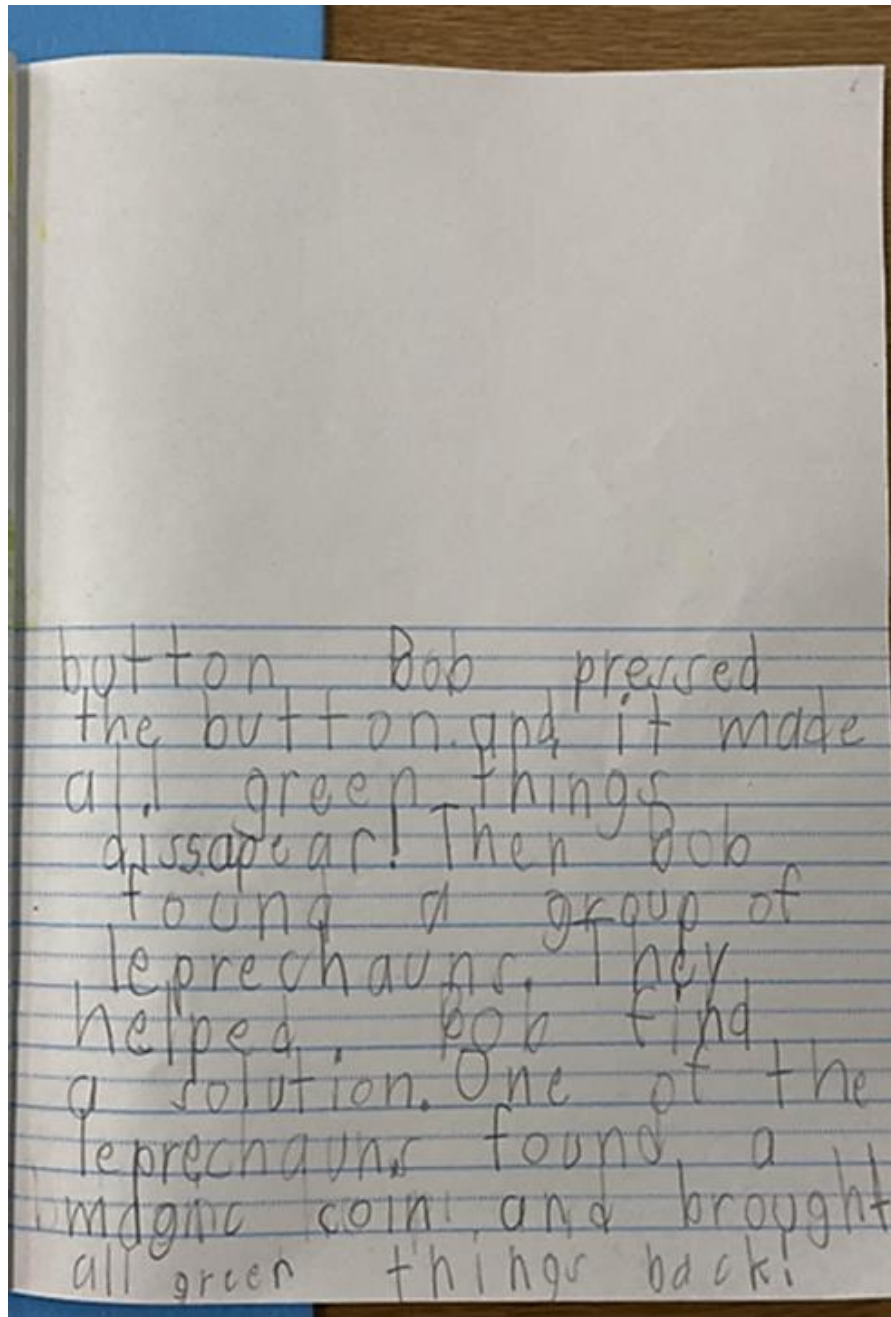 button Bob pressed
the button and it made
all green things
dissapear! Then Bob
found a group of
leprechauns. They
helped Bob find
a solution. One of the
leprechauns found a
magic coin and brought
all green things back!